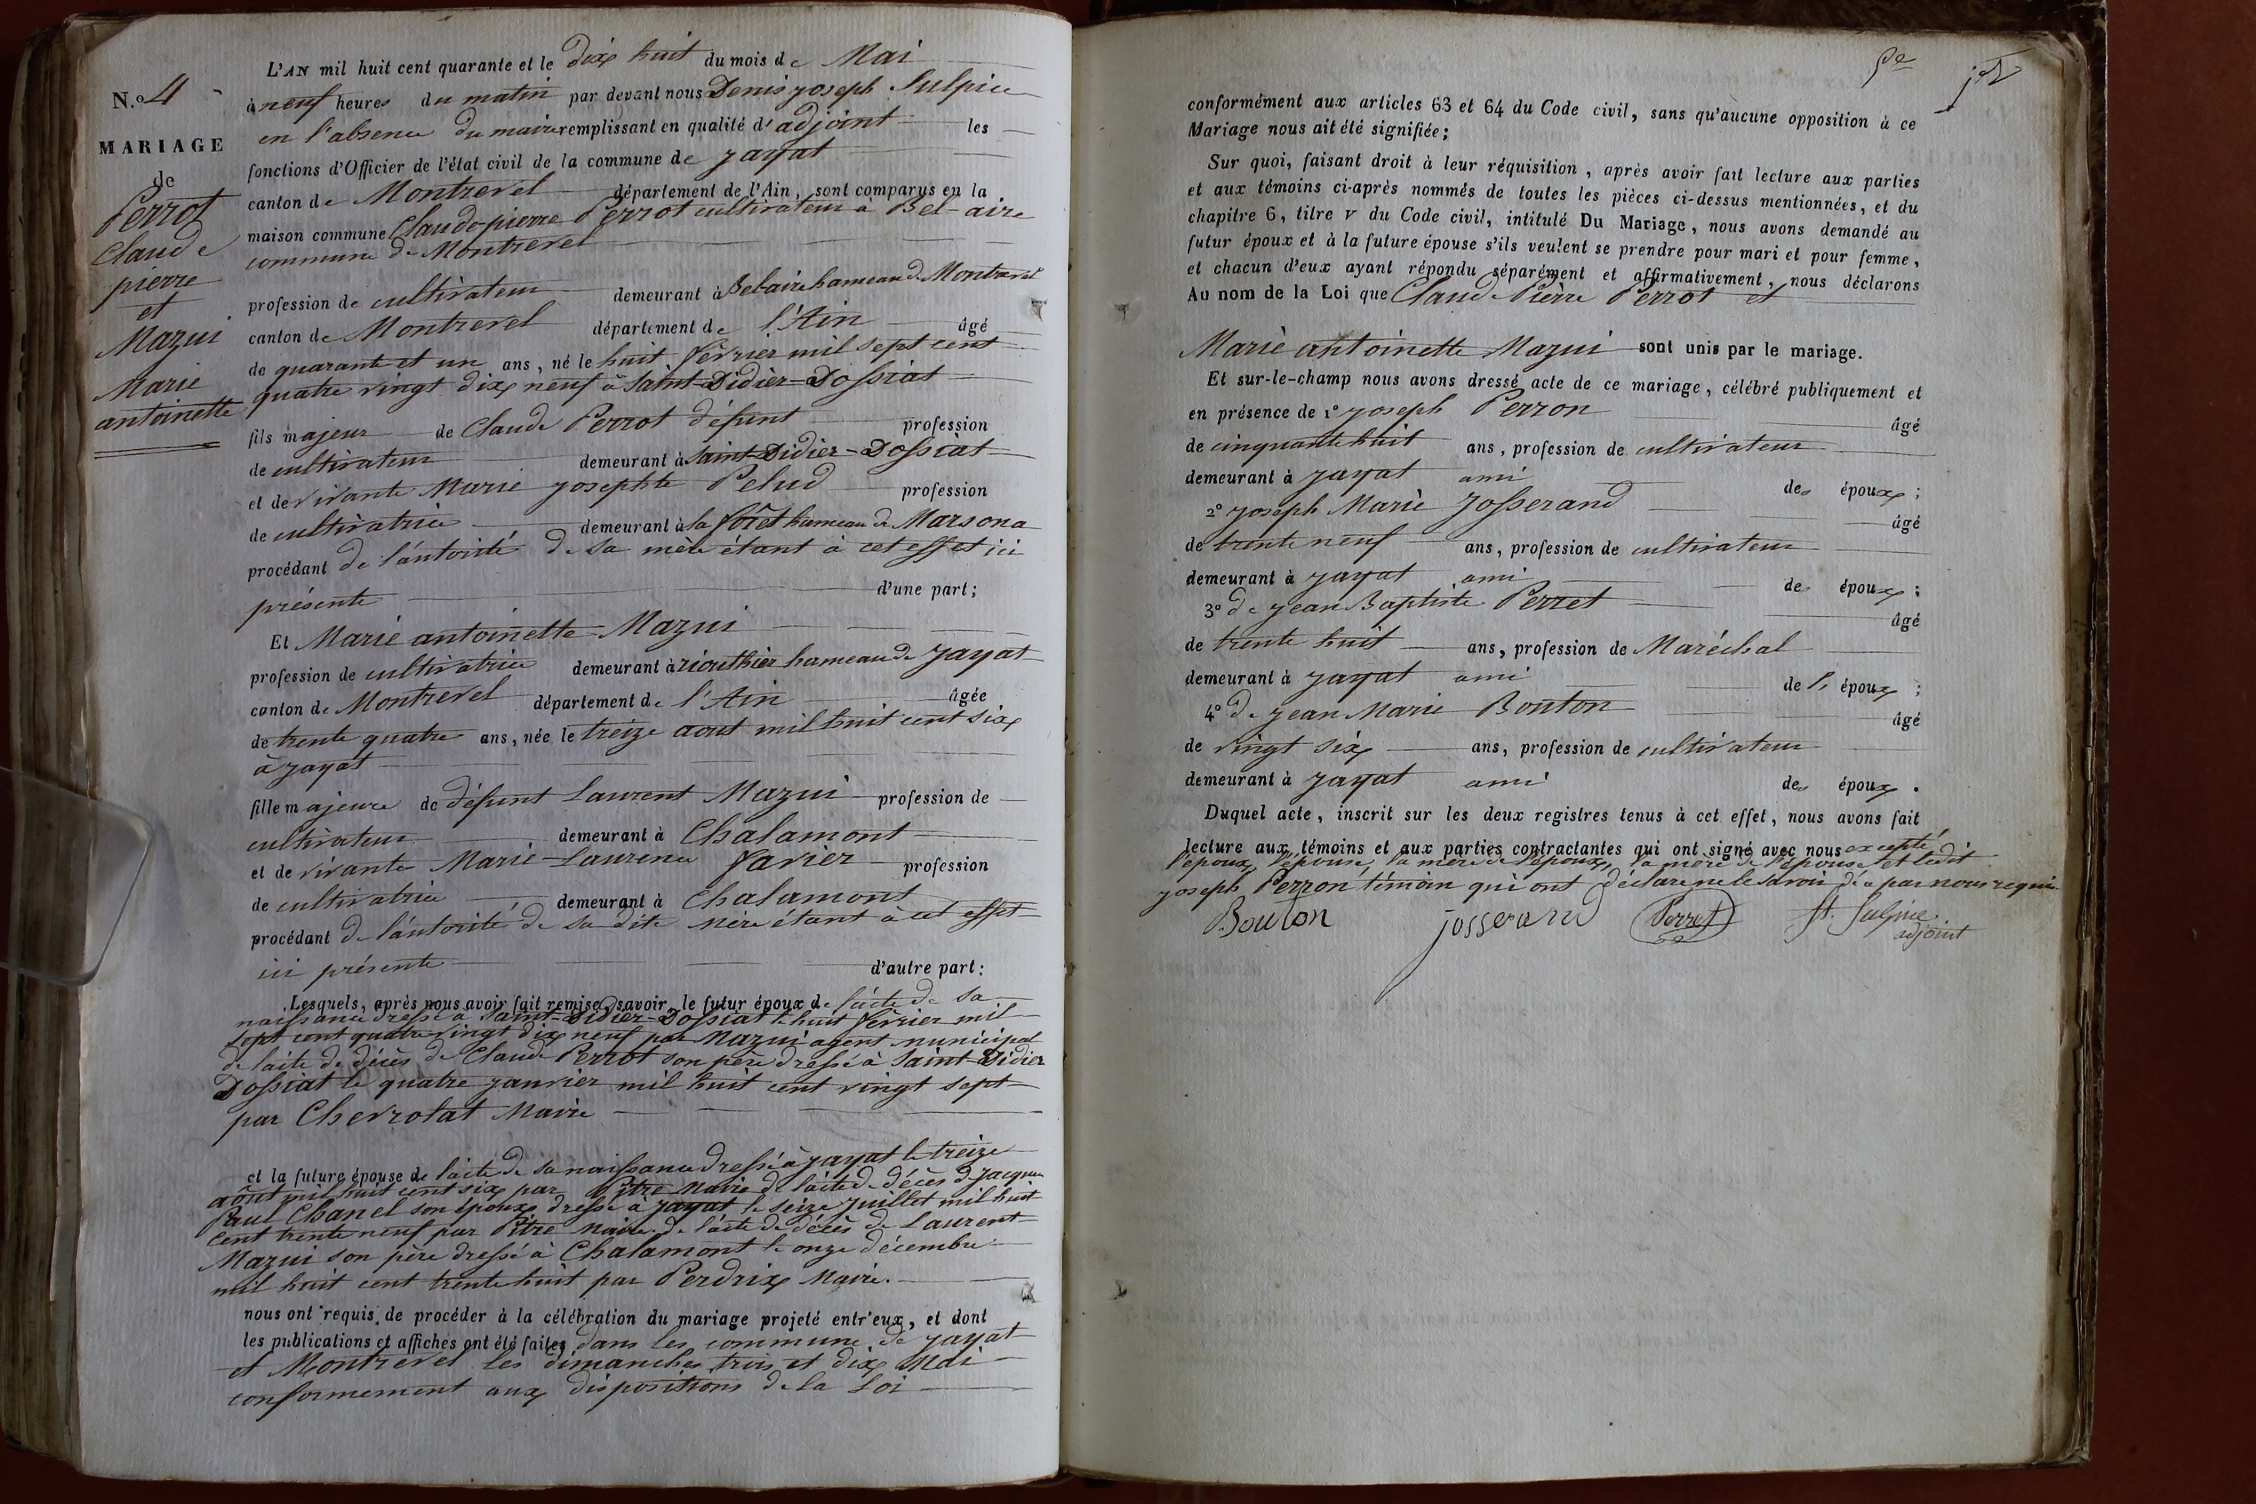 N.º 4
MARIAGE
de
Perrot
Claude
pierre
et
Mazui
Marie
antoinette
L'AN mil huit cent quarante et le dix huit du mois de Mai
à neuf heures du matin par devant nous Denis joseph Sulpice
en l'absence du maire remplissant en qualité d'adjoint les
fonctions d'Officier de l'état civil de la commune de jayat
canton de Montrevel département de l'Ain, sont comparus en la
maison commune Claude pierre Perrot cultivateur à Bel-aire
commune de Montrevel
profession de cultivateur demeurant à Belaire hameau de Montrevel
canton de Montrevel département de l'Ain âgé
de quarante et un ans, né le huit février mil sept cent
quatre vingt dix neuf à Saint-Didier-Dossiat
fils majeur de Claude Perrot défunt profession
de cultivateur demeurant à Saint Didier-Dossiat
et de vivante Marie josephte Pelud profession
de cultivatrice demeurant à la forêt hameau de Marsona
procédant de l'autorité de sa mère étant à cet effet ici
présente d'une part;
Et Marie antoinette Mazui
profession de cultivatrice demeurant à riouthier hameau de Jayat
canton de Montrevel département de l'Ain âgée
de trente quatre ans, née le treize aout mil huit cent six
à jayat
fille majeure de défunt Laurent Mazui profession de
cultivateur demeurant à Chalamont
et de vivante Marie-Laurence favier profession
de cultivatrice demeurant à Chalamont
procédant de l'autorité de sa dite mère étant à cet effet
ici présente d'autre part:
Lesquels, après nous avoir fait remise, savoir, le futur époux de l'acte de sa
naissance dressé à Saint-Didier-Dossiat le huit février mil
sept cent quatre vingt dix neuf par Mazui agent municipal
de l'acte de décès de Claude Perrot son père dressé à Saint-Didier
Dossiat le quatre janvier mil huit cent vingt sept
par Chevrolat Maire
et la future épouse de l'acte de sa naissance dressé à jayat le treize
août mil huit cent six par Pitre Maire de l'acte de décès de Jacques
Paul Chanel son époux dressé à jayat le seize juillet mil huit
cent trente neuf par Pitre Maire de l'acte de décès de Laurent
Mazui son père dressé à Chalamont le onze décembre
mil huit cent trente huit par Perdrix Maire.
nous ont requis de procéder à la célébration du mariage projeté entr'eux, et dont
les publications et affiches ont été faites dans les commune de jayat
et Montrevel les dimanches trois et dix Mai
conformement aux dispositions de la Loi
conformément aux articles 63 et 64 du Code civil, sans qu'aucune opposition à ce
Mariage nous ait été signifiée;
Sur quoi, faisant droit à leur réquisition, après avoir fait lecture aux parties
et aux témoins ci-après nommés de toutes les pièces ci-dessus mentionnées, et du
chapitre 6, titre v du Code civil, intitulé Du Mariage, nous avons demandé au
futur époux et à la future épouse s'ils veulent se prendre pour mari et pour femme,
et chacun d'eux ayant répondu séparément et affirmativement, nous déclarons
Au nom de la Loi que Claude Pierre Perrot et
Marie antoinette Mazui sont unis par le mariage.
Et sur-le-champ nous avons dressé acte de ce mariage, célébré publiquement et
en présence de 1º joseph Perron âgé
de cinquante huit ans, profession de cultivateur
demeurant à jayat ami des époux;
2º joseph Marie Josserand âgé
de trente neuf ans, profession de cultivateur
demeurant à jayat ami des époux;
3º de jean Baptiste Perret âgé
de trente huit ans, profession de Maréchal
demeurant à jayat ami de l' époux;
4º de jean Marie Bouton âgé
de vingt six ans, profession de cultivateur
demeurant à jayat ami des époux.
Duquel acte, inscrit sur les deux registres tenus à cet effet, nous avons fait
lecture aux témoins et aux parties contractantes qui ont signé avec nous excepté
l'époux, l'épouse, la mère de l'époux, la mère de l'épouse et ledit
joseph Perron témoin qui ont déclaré ne le savoir de ce par nous requis
Bouton josserand Perret St. Sulpice
adjoint